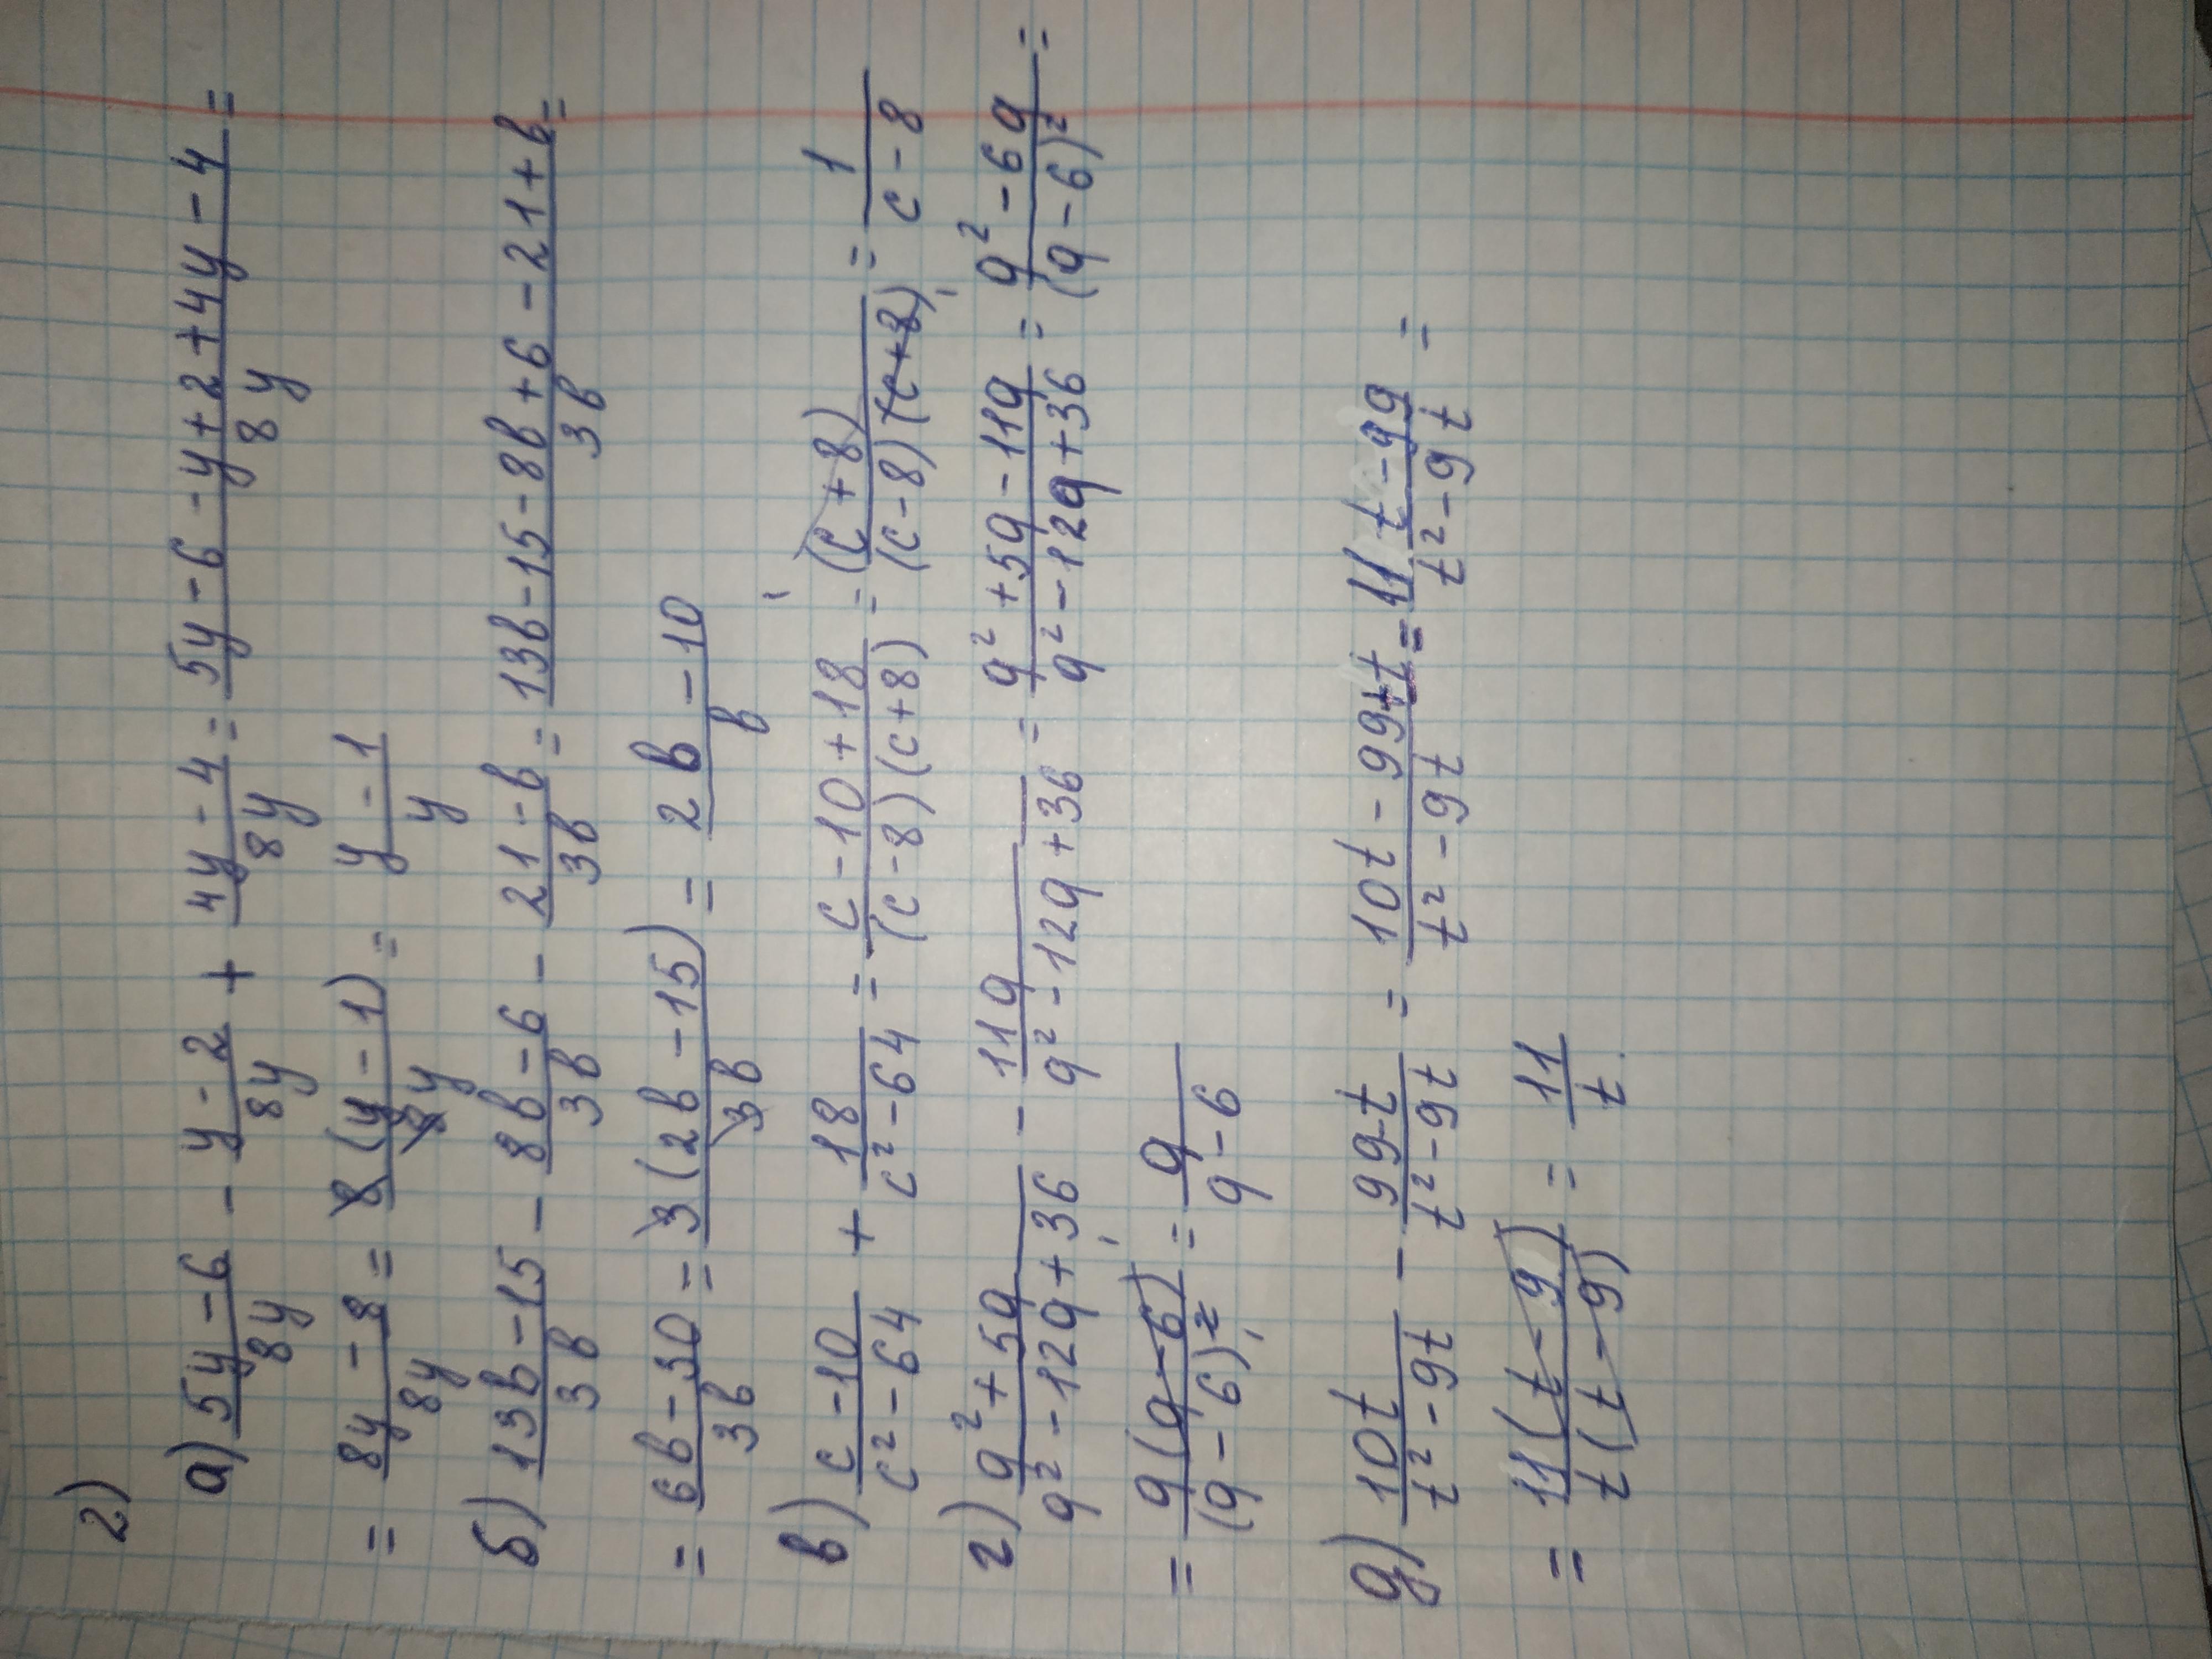 2)
а) (5y-6)/(8y) - (y-2)/(8y) + (4y-4)/(8y) = (5y-6-y+2+4y-4)/(8y) =
= (8y-8)/(8y) = (8(y-1))/(8y) = (y-1)/y
б) (13b-15)/(3b) - (8b-6)/(3b) - (21-b)/(3b) = (13b-15-8b+6-21+b)/(3b) =
= (6b-30)/(3b) = (3(2b-15))/(3b) = (2b-10)/b
в) (c-10)/(c²-64) + 18/(c²-64) = (c-10+18)/((c-8)(c+8)) = (c+8)/((c-8)(c+8)) = 1/(c-8)
г) (q²+5q)/(q²-12q+36) - 11q/(q²-12q+36) = (q²+5q-11q)/(q²-12q+36) = (q²-6q)/(q-6)² =
= (q(q-6))/(q-6)² = q/(q-6)
д) 10t/(t²-9t) - (99-t)/(t²-9t) = (10t-99+t)/(t²-9t) = (11t-99)/(t²-9t) =
= (11(t-9))/(t(t-9)) = 11/t.